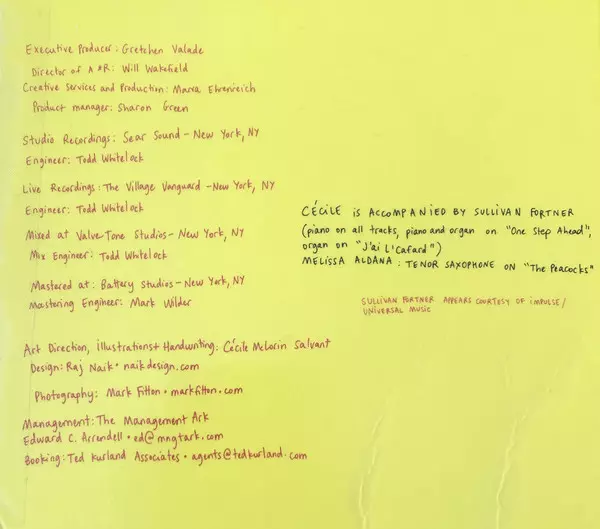 Executive Producer: Gretchen Valade
Director of A&R: Will Wakefield
Creative Services and Production: Maria Ehrenreich
Product manager: Sharon Green
Studio Recordings: Sear Sound - New York, NY
Engineer: Todd Whitelock
Live Recordings: The Village Vanguard - New York, NY
Engineer: Todd Whitelock
Mixed at Valve-Tone Studios - New York, NY
Mix Engineer: Todd Whitelock
Mastered at: Battery Studios - New York, NY
Mastering Engineer: Mark Wilder
Art Direction, illustrations + Handwriting: Cécile McLorin Salvant
Design: Raj Naik • naikdesign.com
Photography: Mark Fitton • markfitton.com
Management: The Management Ark
Edward C. Arrendell • ed@mngtark.com
Booking: Ted Kurland Associates • agents@tedkurland.com
CÉCILE iS ACCOMPANiED BY SULLiVAN FORTNER
(piano on all tracks, piano and organ on "One Step Ahead",
organ on "J'ai L'Cafard")
MELiSSA ALDANA: TENOR SAXOPHONE ON "The Peacocks"
SULLiVAN FORTNER APPEARS COURTESY OF iMPULSE/
UNiVERSAL MUSiC